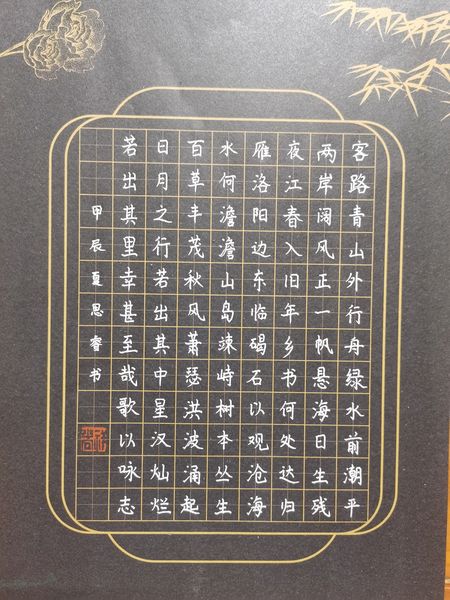 客路青山外行舟绿水前潮平
两岸阔风正一帆悬海日生残
夜江春入旧年乡书何处达归
雁洛阳边东临碣石以观沧海
水何澹澹山岛竦峙树本丛生
百草丰茂秋风萧瑟洪波涌起
日月之行若出其中星汉灿烂
若出其里幸甚至哉歌以咏志
甲辰夏思睿书